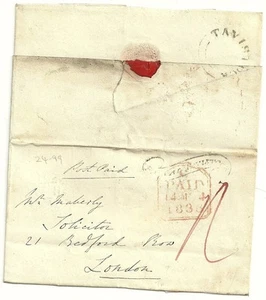 TAVIST
24-99
Post Paid
PAID
183
Mr. Maberly
Solicitor
21 Bedford Row
London